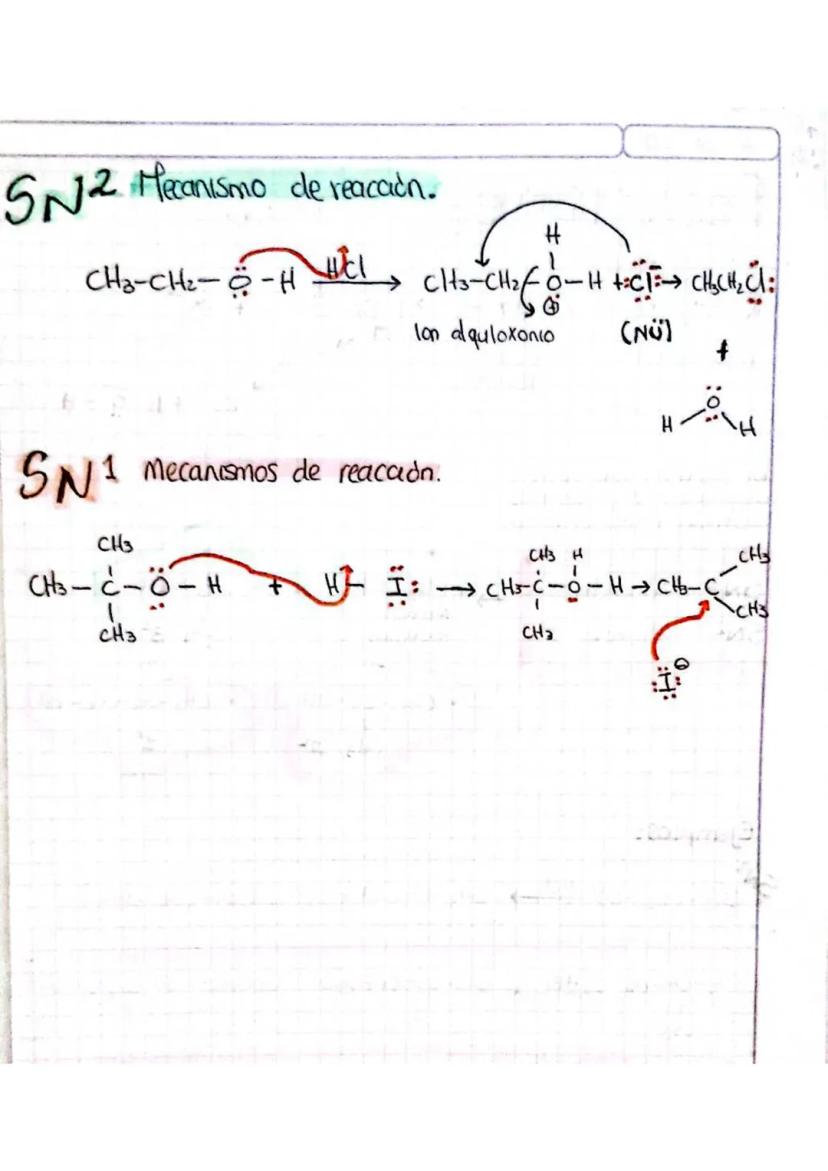 SN2 Mecanismo de reacción.
H
CH3-CH2-O-H HCl → CH3-CH2-O-H + :Cl:⁻ → CH3CH2Cl:
⊕
Ion alquiloxonio (Nü)
+
O
H H
SN1 Mecanismos de reacción.
CH3 CH3 H CH3
CH3-C-O-H + H-I: → CH3-C-O-H → CH3-C
CH3 CH3 CH3
:I:⊖